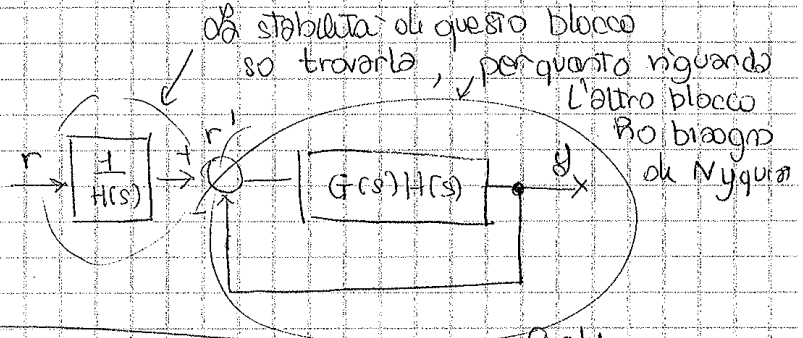 la stabilità di questo blocco
so trovarla, per quanto riguarda
L'altro blocco
ho bisogno
di Nyquist
r
1
H(s)
+
r'
G(s)H(s)
y
-